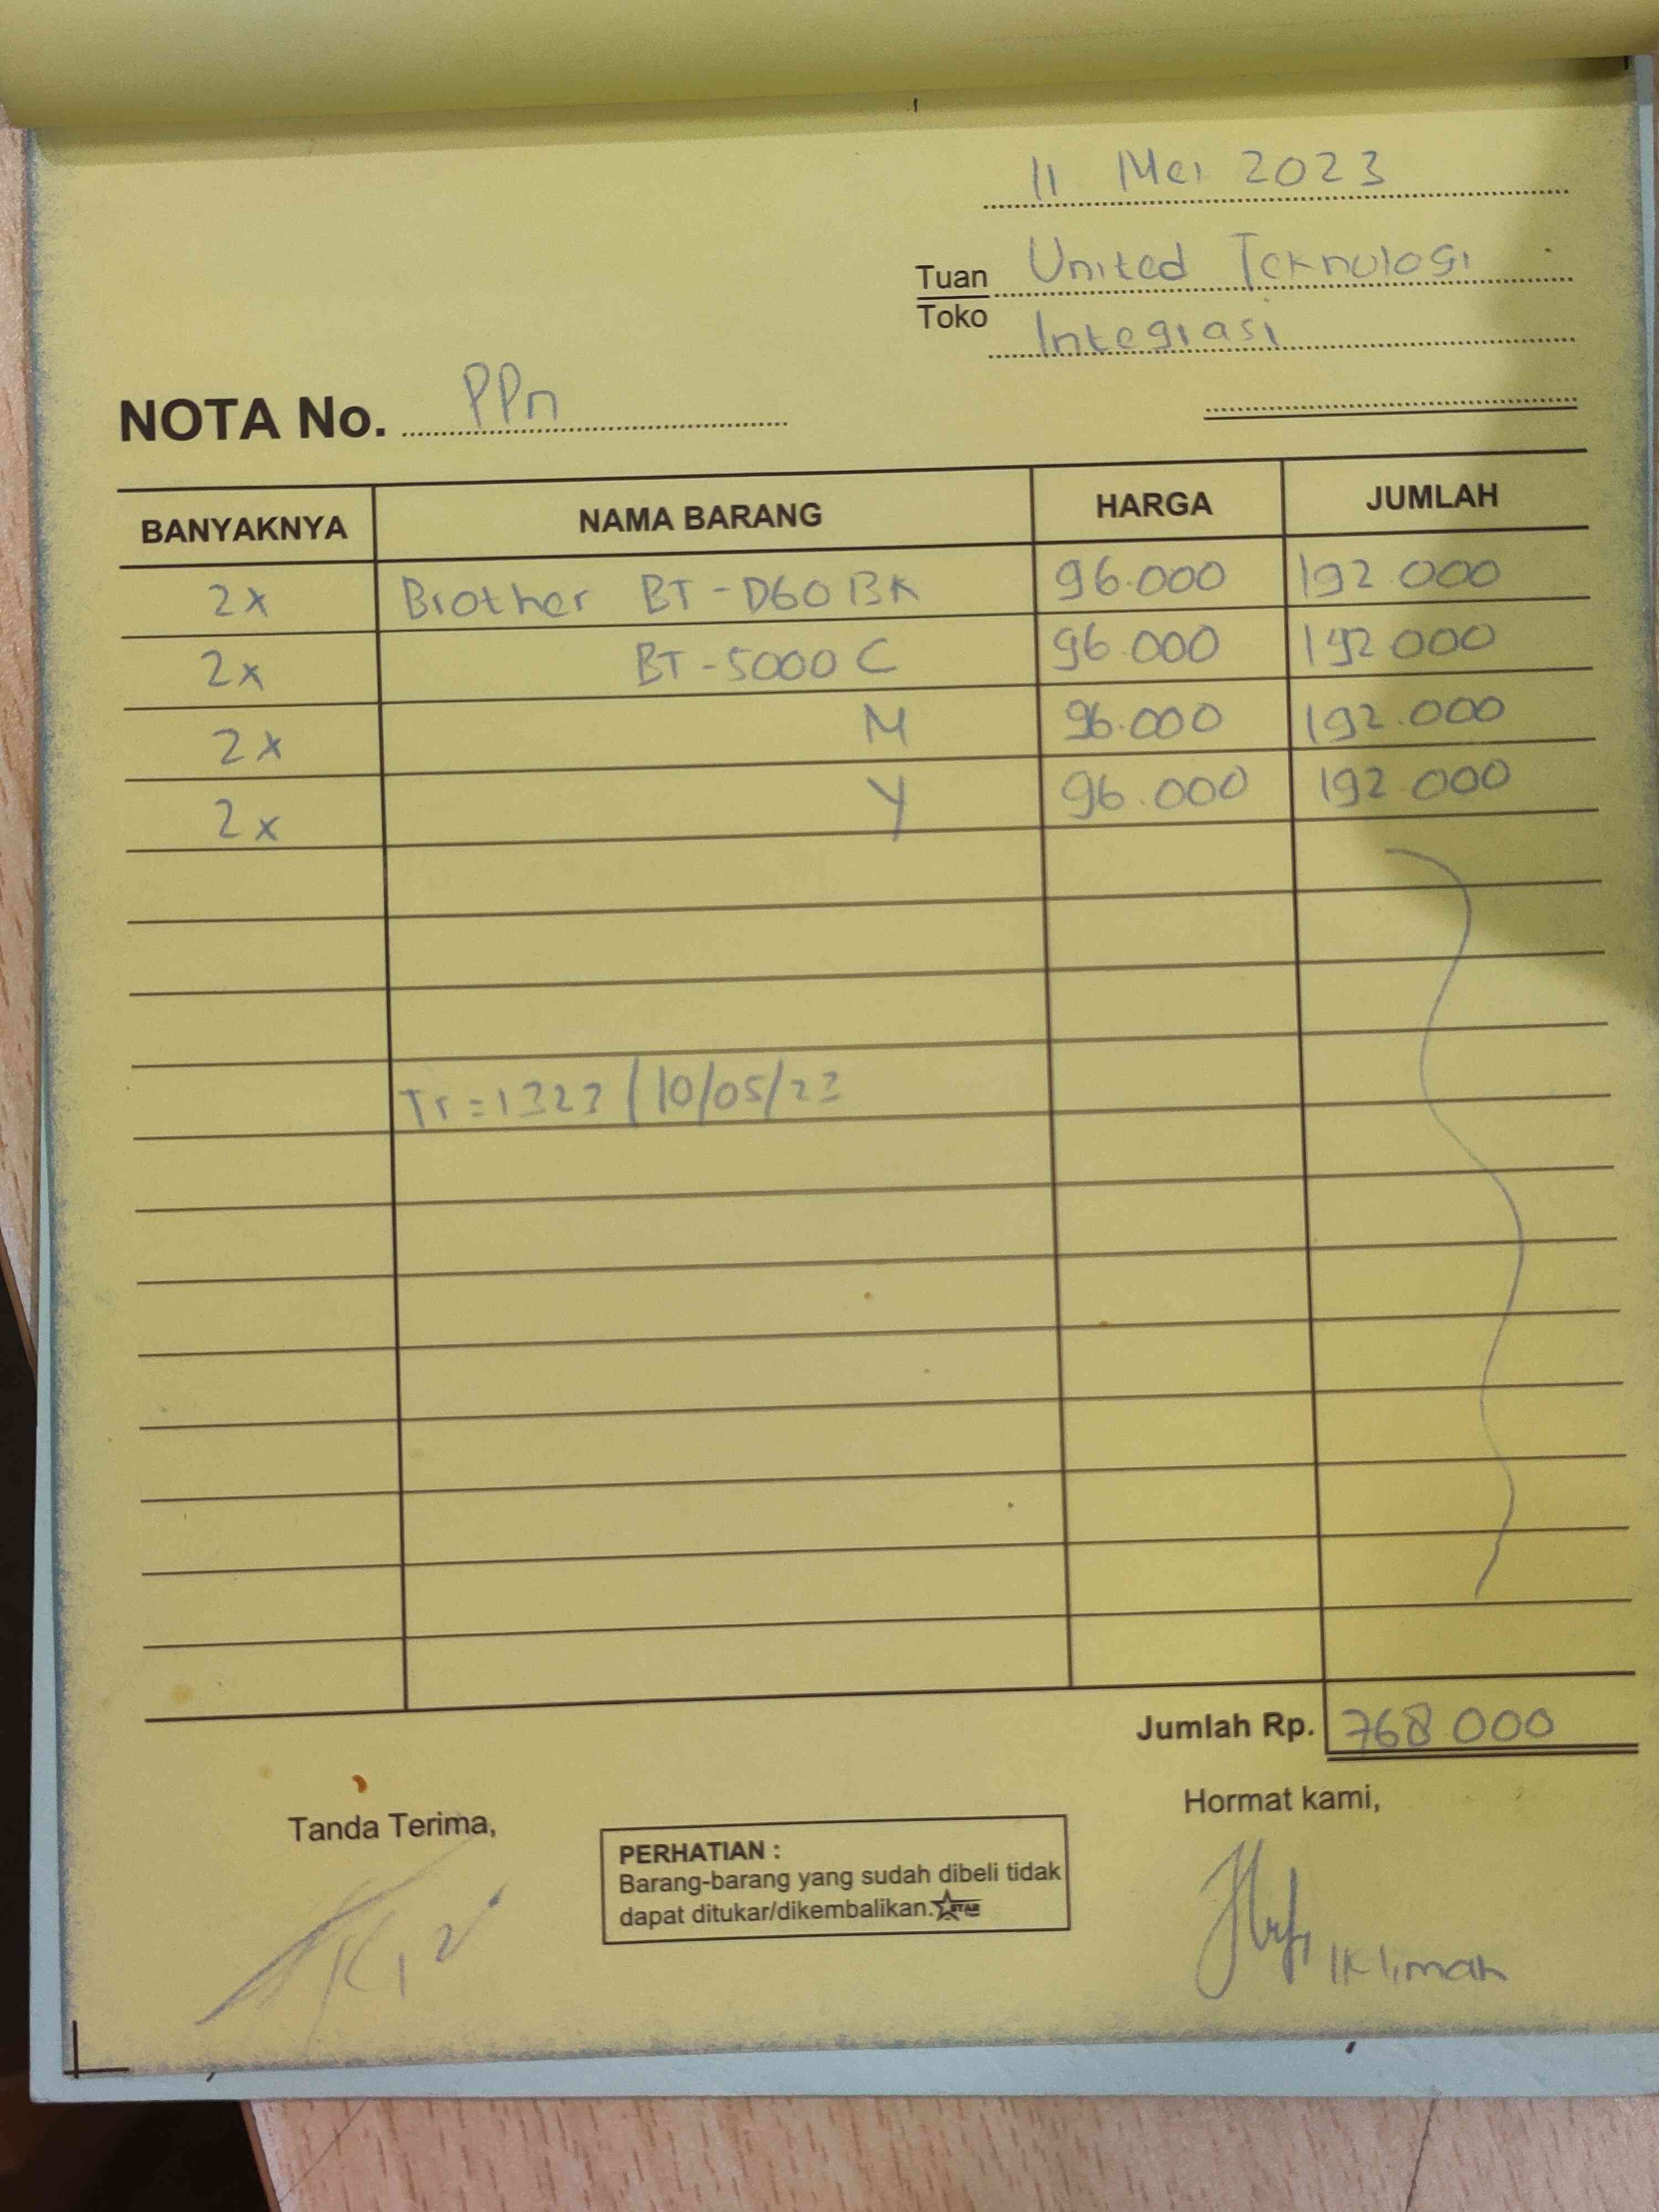 11 Mei 2023
Tuan United Teknologi
Toko Integrasi
NOTA No. PPn
BANYAKNYA NAMA BARANG HARGA JUMLAH
2x Brother BT-D60BK 96.000 192.000
2x BT-5000 C 96.000 192.000
2x M 96.000 192.000
2x Y 96.000 192.000
Tr=1323/10/05/23
Jumlah Rp. 768.000
Tanda Terima,
Hormat kami,
PERHATIAN :
Barang-barang yang sudah dibeli tidak
dapat ditukar/dikembalikan.
Iklimah